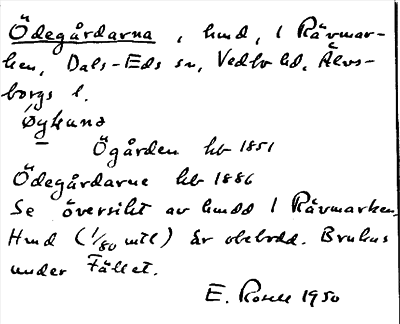 Ödegårdarna, hmd, i Rävmar-
ken, Dals-Eds sn, Vedbo hd, Älvs-
borgs l.
Øygunə
Ögården hb 1851
Ödegårdarne hb 1886
Se översikt av hmdd i Rävmarken.
Hmd (1/80 mtl) är obebodd. Brukas
under Fället.
E. Rosell 1950